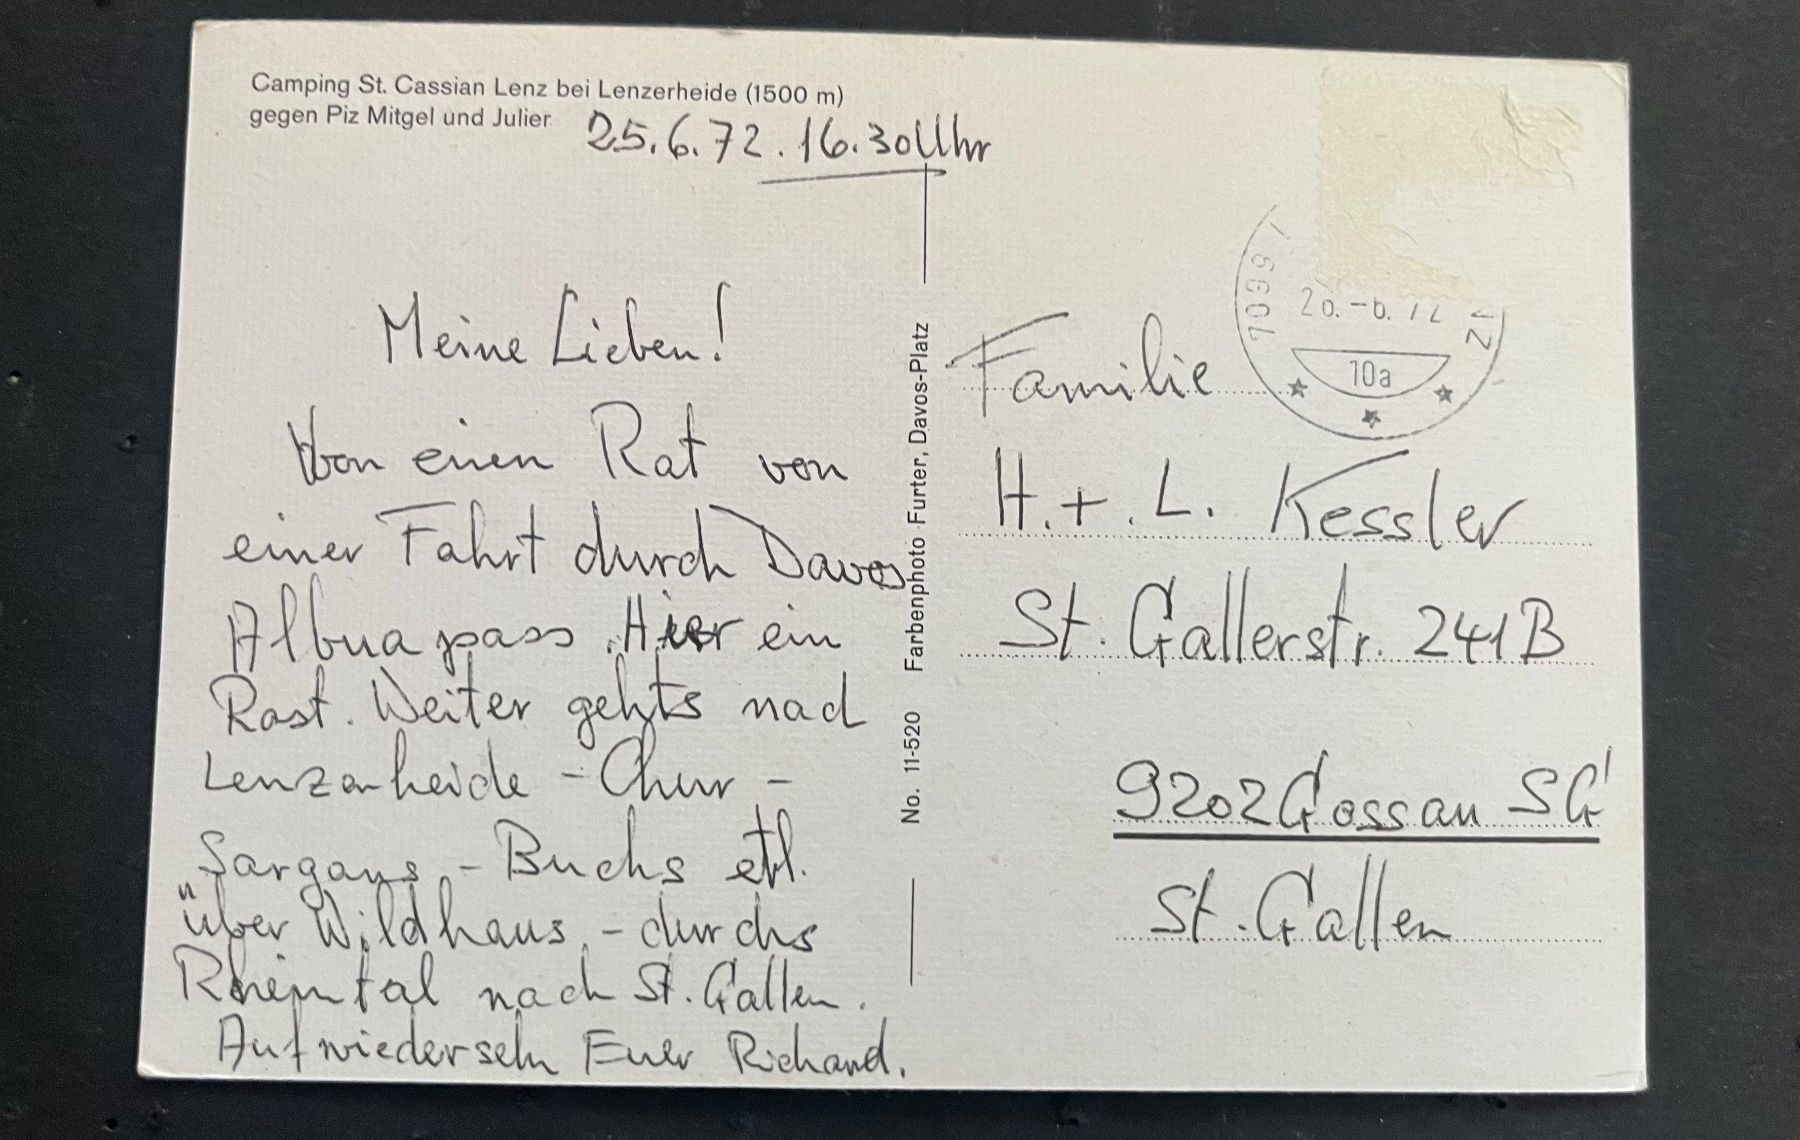 Camping St. Cassian Lenz bei Lenzerheide (1500 m)
gegen Piz Mitgel und Julier
25.6.72. 16.30 Uhr
Meine Lieben!
Von einen Rat von
einer Fahrt durch Davos
Albuapass. Hier ein
Rast. Weiter gehts nach
Lenzerheide - Chur -
Sargans - Buchs etl.
über Wildhaus, - durchs
Rheintal nach St. Gallen.
Aufwiedersehn Euer Richard.
No. 11-520 Farbenphoto Furter, Davos-Platz
7099
26.-6.72
10a
Familie
H. + L. Kessler
St. Gallerstr. 241B
9202 Gossau SG
St. Gallen